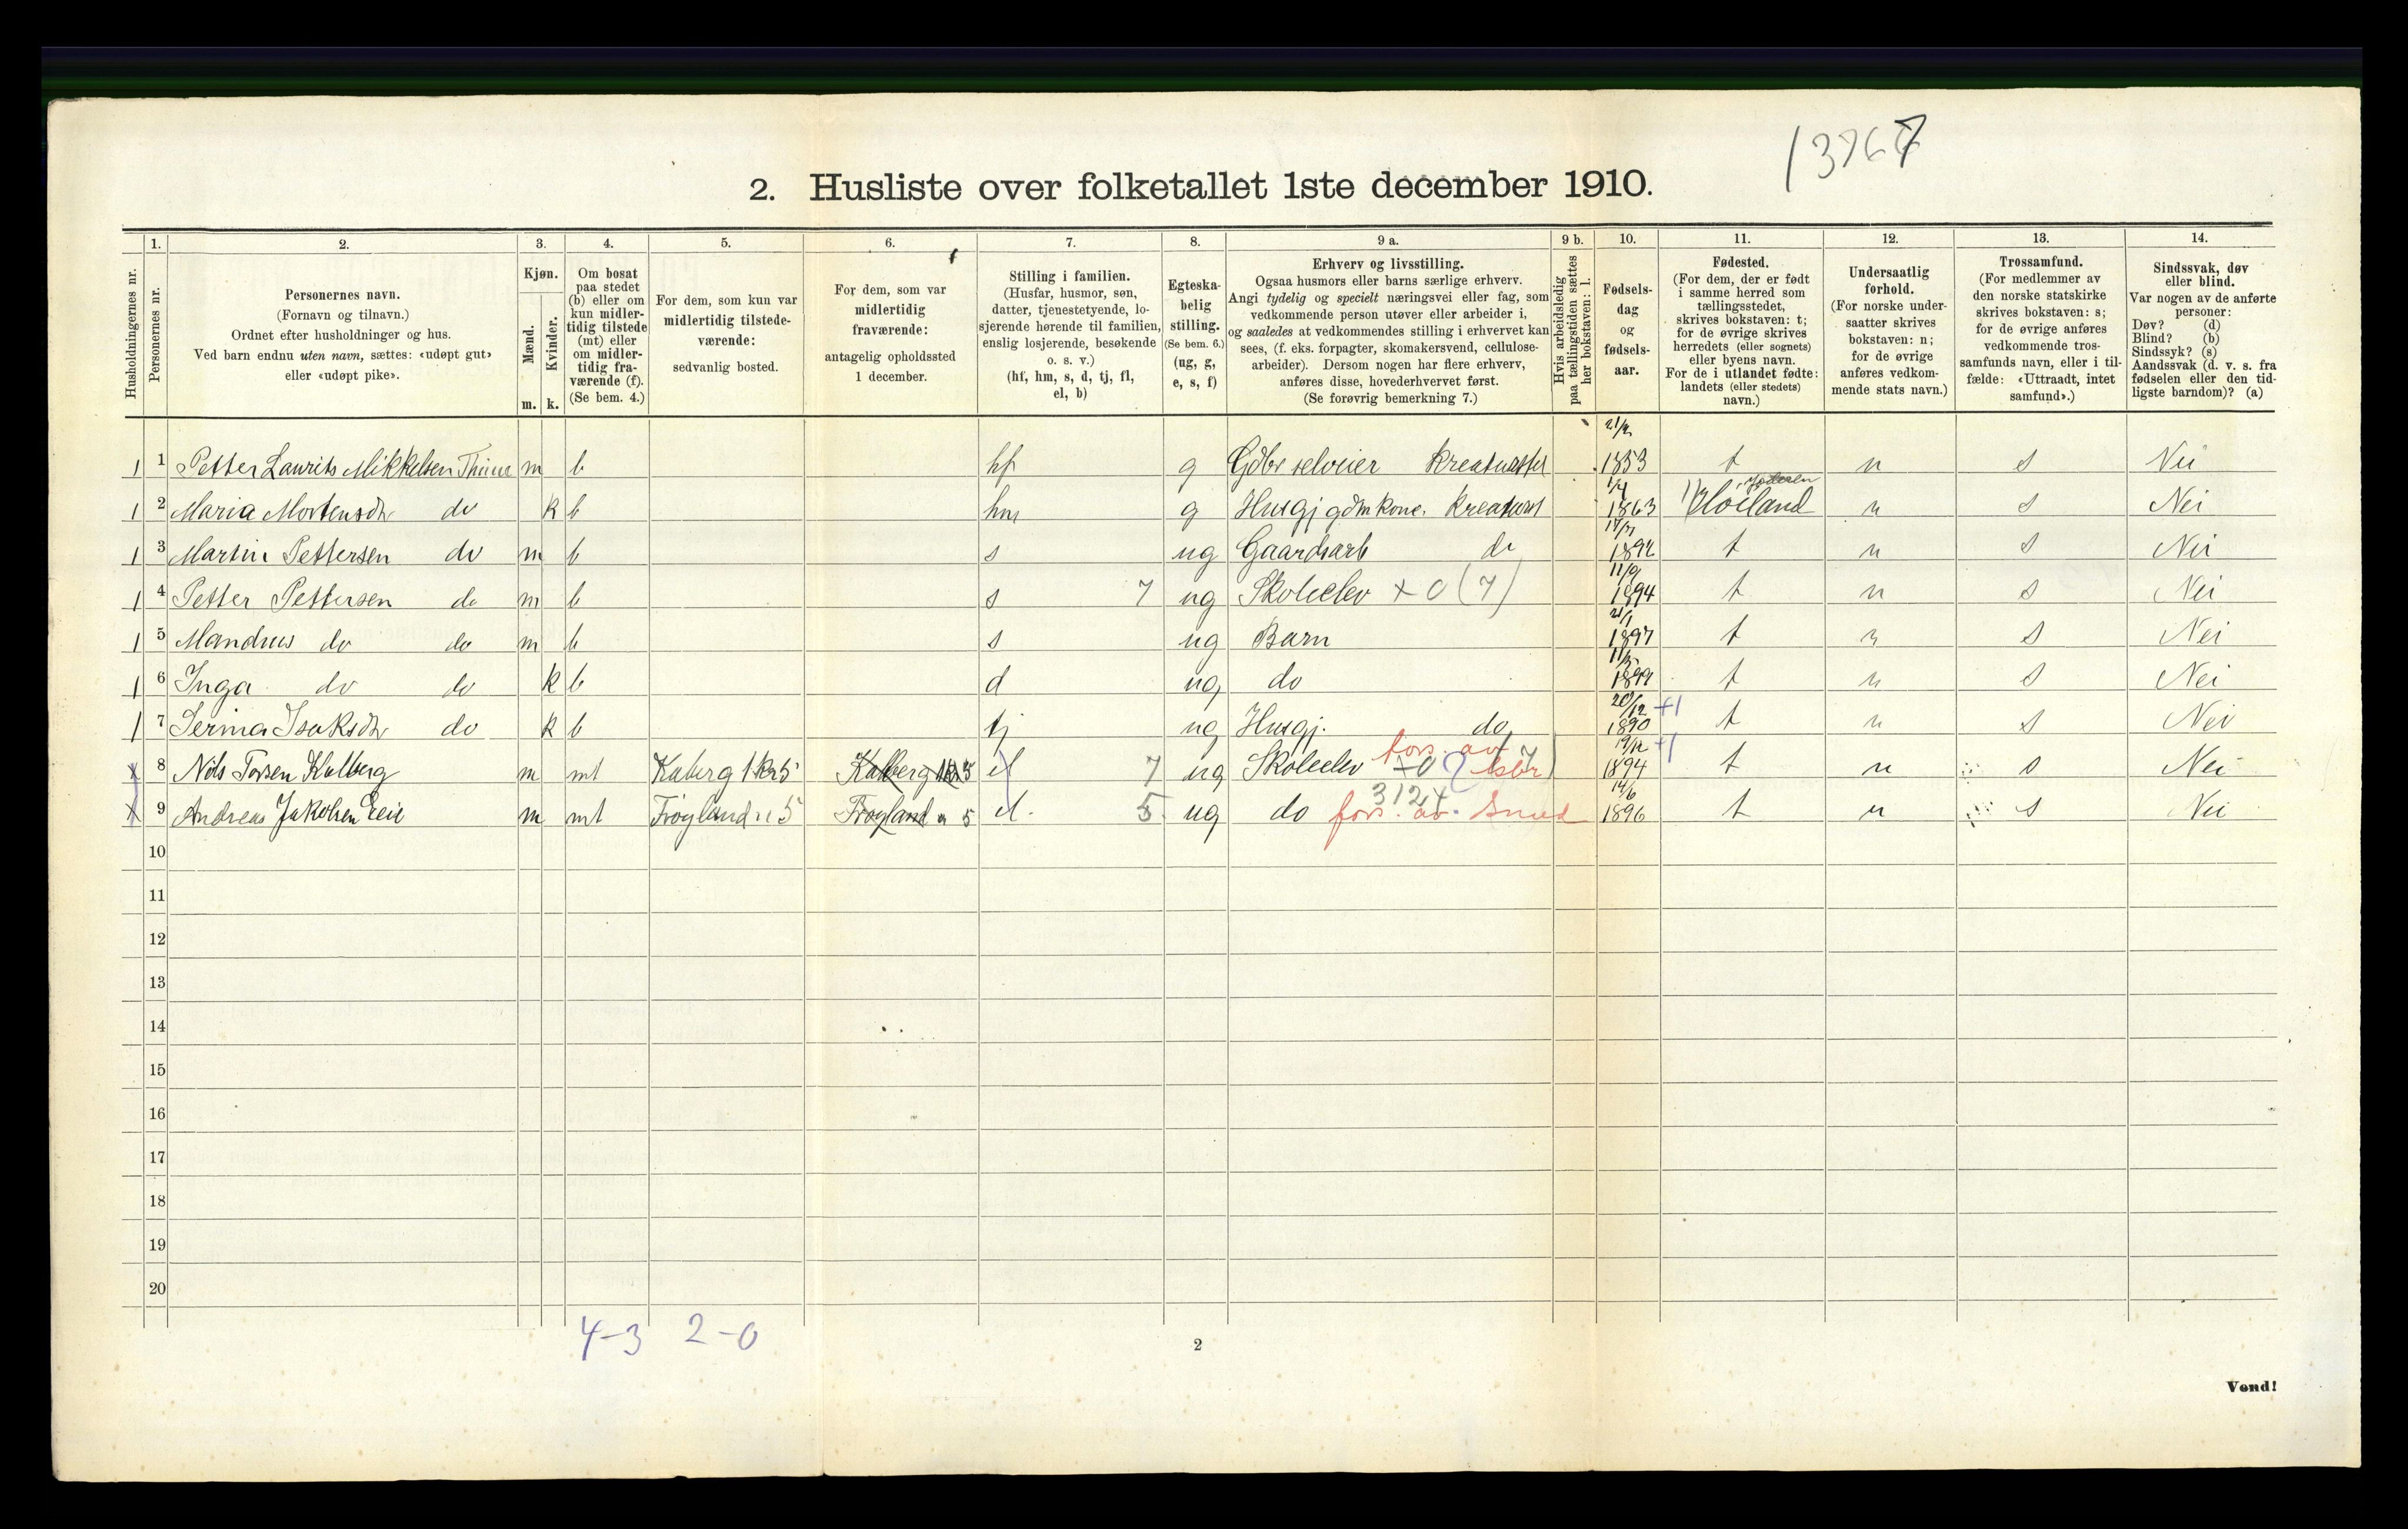 2. Husliste over folketallet 1ste december 1910.
1. 2. 3. 4. 5. 6. 7. 8. 9 a. 9 b. 10. 11. 12. 13. 14.
Husholdningernes nr.
Personernes nr.
Personernes navn.
(Fornavn og tilnavn.)
Ordnet efter husholdninger og hus.
Ved barn endnu uten navn, sættes: «udøpt gut»
eller «udøpt pike».
Kjøn.
Mænd.
Kvinder.
m. k.
Om bosat
paa stedet
(b) eller om
kun midler-
tidig tilstede
(mt) eller
om midler-
tidig fra-
værende (f).
(Se bem. 4.)
For dem, som kun var
midlertidig tilstede-
værende:
sedvanlig bosted.
For dem, som var
midlertidig
fraværende:
antagelig opholdssted
1 december.
Stilling i familien.
(Husfar, husmor, søn,
datter, tjenestetyende, lo-
sjerende hørende til familien,
enslig losjerende, besøkende
o. s. v.)
(hf, hm, s, d, tj, fl,
el, b)
Egteska-
belig
stilling.
(Se bem. 6.)
(ug, g,
e, s, f)
Erhverv og livsstilling.
Ogsaa husmors eller barns særlige erhverv.
Angi tydelig og specielt næringsvei eller fag, som
vedkommende person utøver eller arbeider i,
og saaledes at vedkommendes stilling i erhvervet kan
sees, (f. eks. forpagter, skomakersvend, cellulose-
arbeider). Dersom nogen har flere erhverv,
anføres disse, hovederhvervet først.
(Se forøvrig bemerkning 7.)
Hvis arbeidsledig
paa tællingstiden sættes
her bokstaven: l.
Fødsels-
dag
og
fødsels-
aar.
Fødested.
(For dem, der er født
i samme herred som
tællingsstedet,
skrives bokstaven: t;
for de øvrige skrives
herredets (eller sognets)
eller byens navn.
For de i utlandet fødte:
landets (eller stedets)
navn.)
Undersaatlig
forhold.
(For norske under-
saatter skrives
bokstaven: n;
for de øvrige
anføres vedkom-
mende stats navn.)
Trossamfund.
(For medlemmer av
den norske statskirke
skrives bokstaven: s;
for de øvrige anføres
vedkommende tros-
samfunds navn, eller i til-
fælde: «Uttraadt, intet
samfund».)
Sindssvak, døv
eller blind.
Var nogen av de anførte
personer:
Døv? (d)
Blind? (b)
Sindssyk? (s)
Aandssvak (d. v. s. fra
fødselen eller den tid-
ligste barndom)? (a)
1 1 Petter Laurits Mikkelsen m b hf g Gdbr selveier 1853 t n s Nei
1 2 Maria Mortensdtr do k b hm g 1/4 1863 Høiland, Jæderen n s Nei
1 3 Martin Pettersen do m b s ug Gaardsarb do 1892 t n s Nei
1 4 Petter Pettersen do m b s 7 ug Skoleelev x 0 (7) 11/9 1894 t n s Nei
1 5 Mandrus do do m b s ug Barn 21/1 1897 t n s Nei
1 6 Inga do do k b d ug do 1899 t n s Nei
1 7 Serina Isaksdtr do k b tj ug Husgj. do 20/12 1890 +1 t n s Nei
x 8 Nils Torsen Kalberg m mt Kaberg 1 kr 5 Kalberg el 7 ug Skoleelev x 0 fors. av 19/12 1894 +1 t n s Nei
x 9 Andreas Jakobsen Eeie m mt Frøyland 5 Frøyland 5 el. 5 ug do 312 fors. av Smed 14/6 1896 t n s Nei
10
11
12
13
14
15
16
17
18
19
20
4-3 2-0
2
Vend!